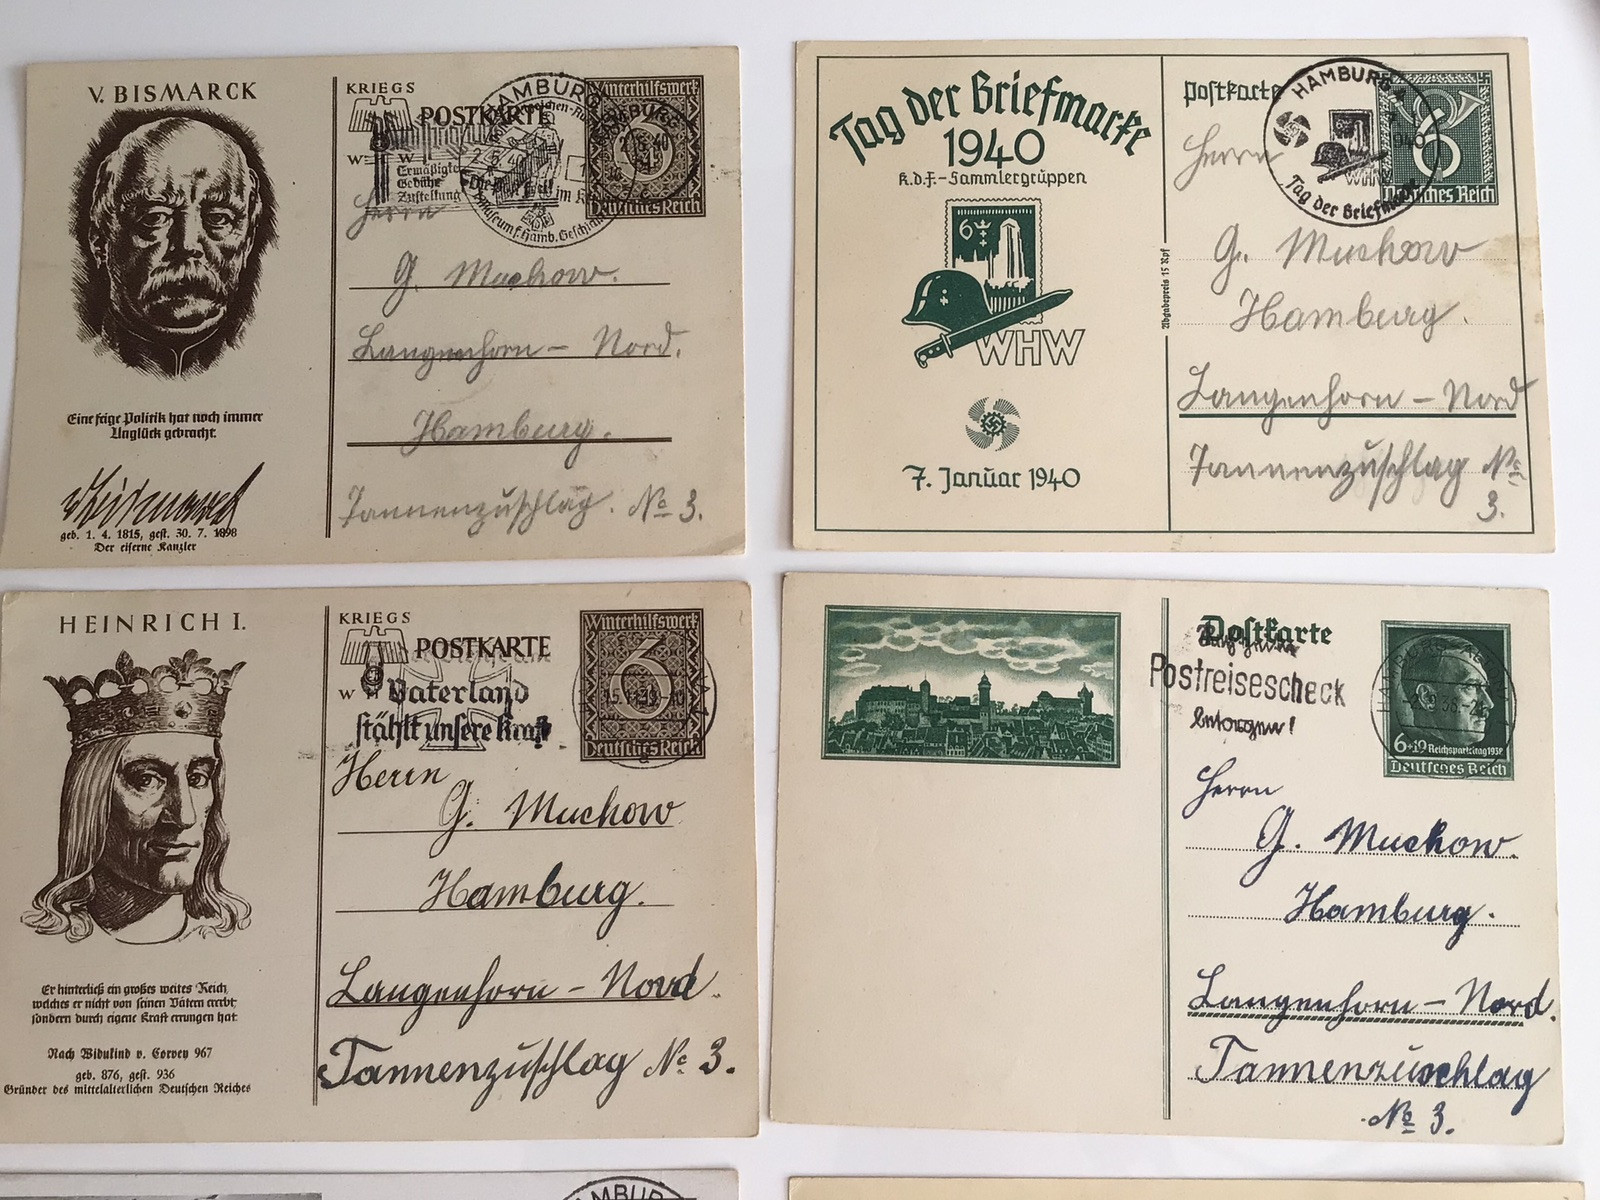 V. BISMARCK
Eine feige Politik hat noch immer
Unglück gebracht.
geb. 1. 4. 1815, gest. 30. 7. 1898
Der eiserne Kanzler
KRIEGS
POSTKARTE
Winterhilfswerk
6
Deutsches Reich
HAMBURG
2.5.40
Ermäßigte
Gebühr
Zustellung
Herrn
G. Muchow.
Langenhorn - Nord.
Hamburg.
Tannenzuschlag. No 3.
Tag der Briefmarke
1940
K.d.F.-Sammlergruppen
6
WHW
7. Januar 1940
Abgabepreis 15 Rpf
Postkarte
HAMBURG
1940
WHW
Tag der Briefmarke
6
Deutsches Reich
Herrn
G. Muchow
Hamburg.
Langenhorn - Nord
Tannenzuschlag No
3.
HEINRICH I.
Er hinterließ ein großes weites Reich,
welches er nicht von seinen Vätern ererbt,
sondern durch eigene Kraft errungen hat
Nach Widukind v. Corvey 967
geb. 876, gest. 936
Gründer des mittelalterlichen Deutschen Reiches
KRIEGS
POSTKARTE
Winterhilfswerk
6
Deutsches Reich
W H
Vaterland
stählt unsere Kraft
Herrn
G. Muchow
Hamburg.
Langenhorn - Nord.
Tannenzuschlag No 3.
Postkarte
Postreisescheck
besorgen!
6+19 Reichsparteitag 1938
Deutsches Reich
Herrn
G. Muchow.
Hamburg.
Langenhorn - Nord.
Tannenzuschlag
No 3.
HAMBURG